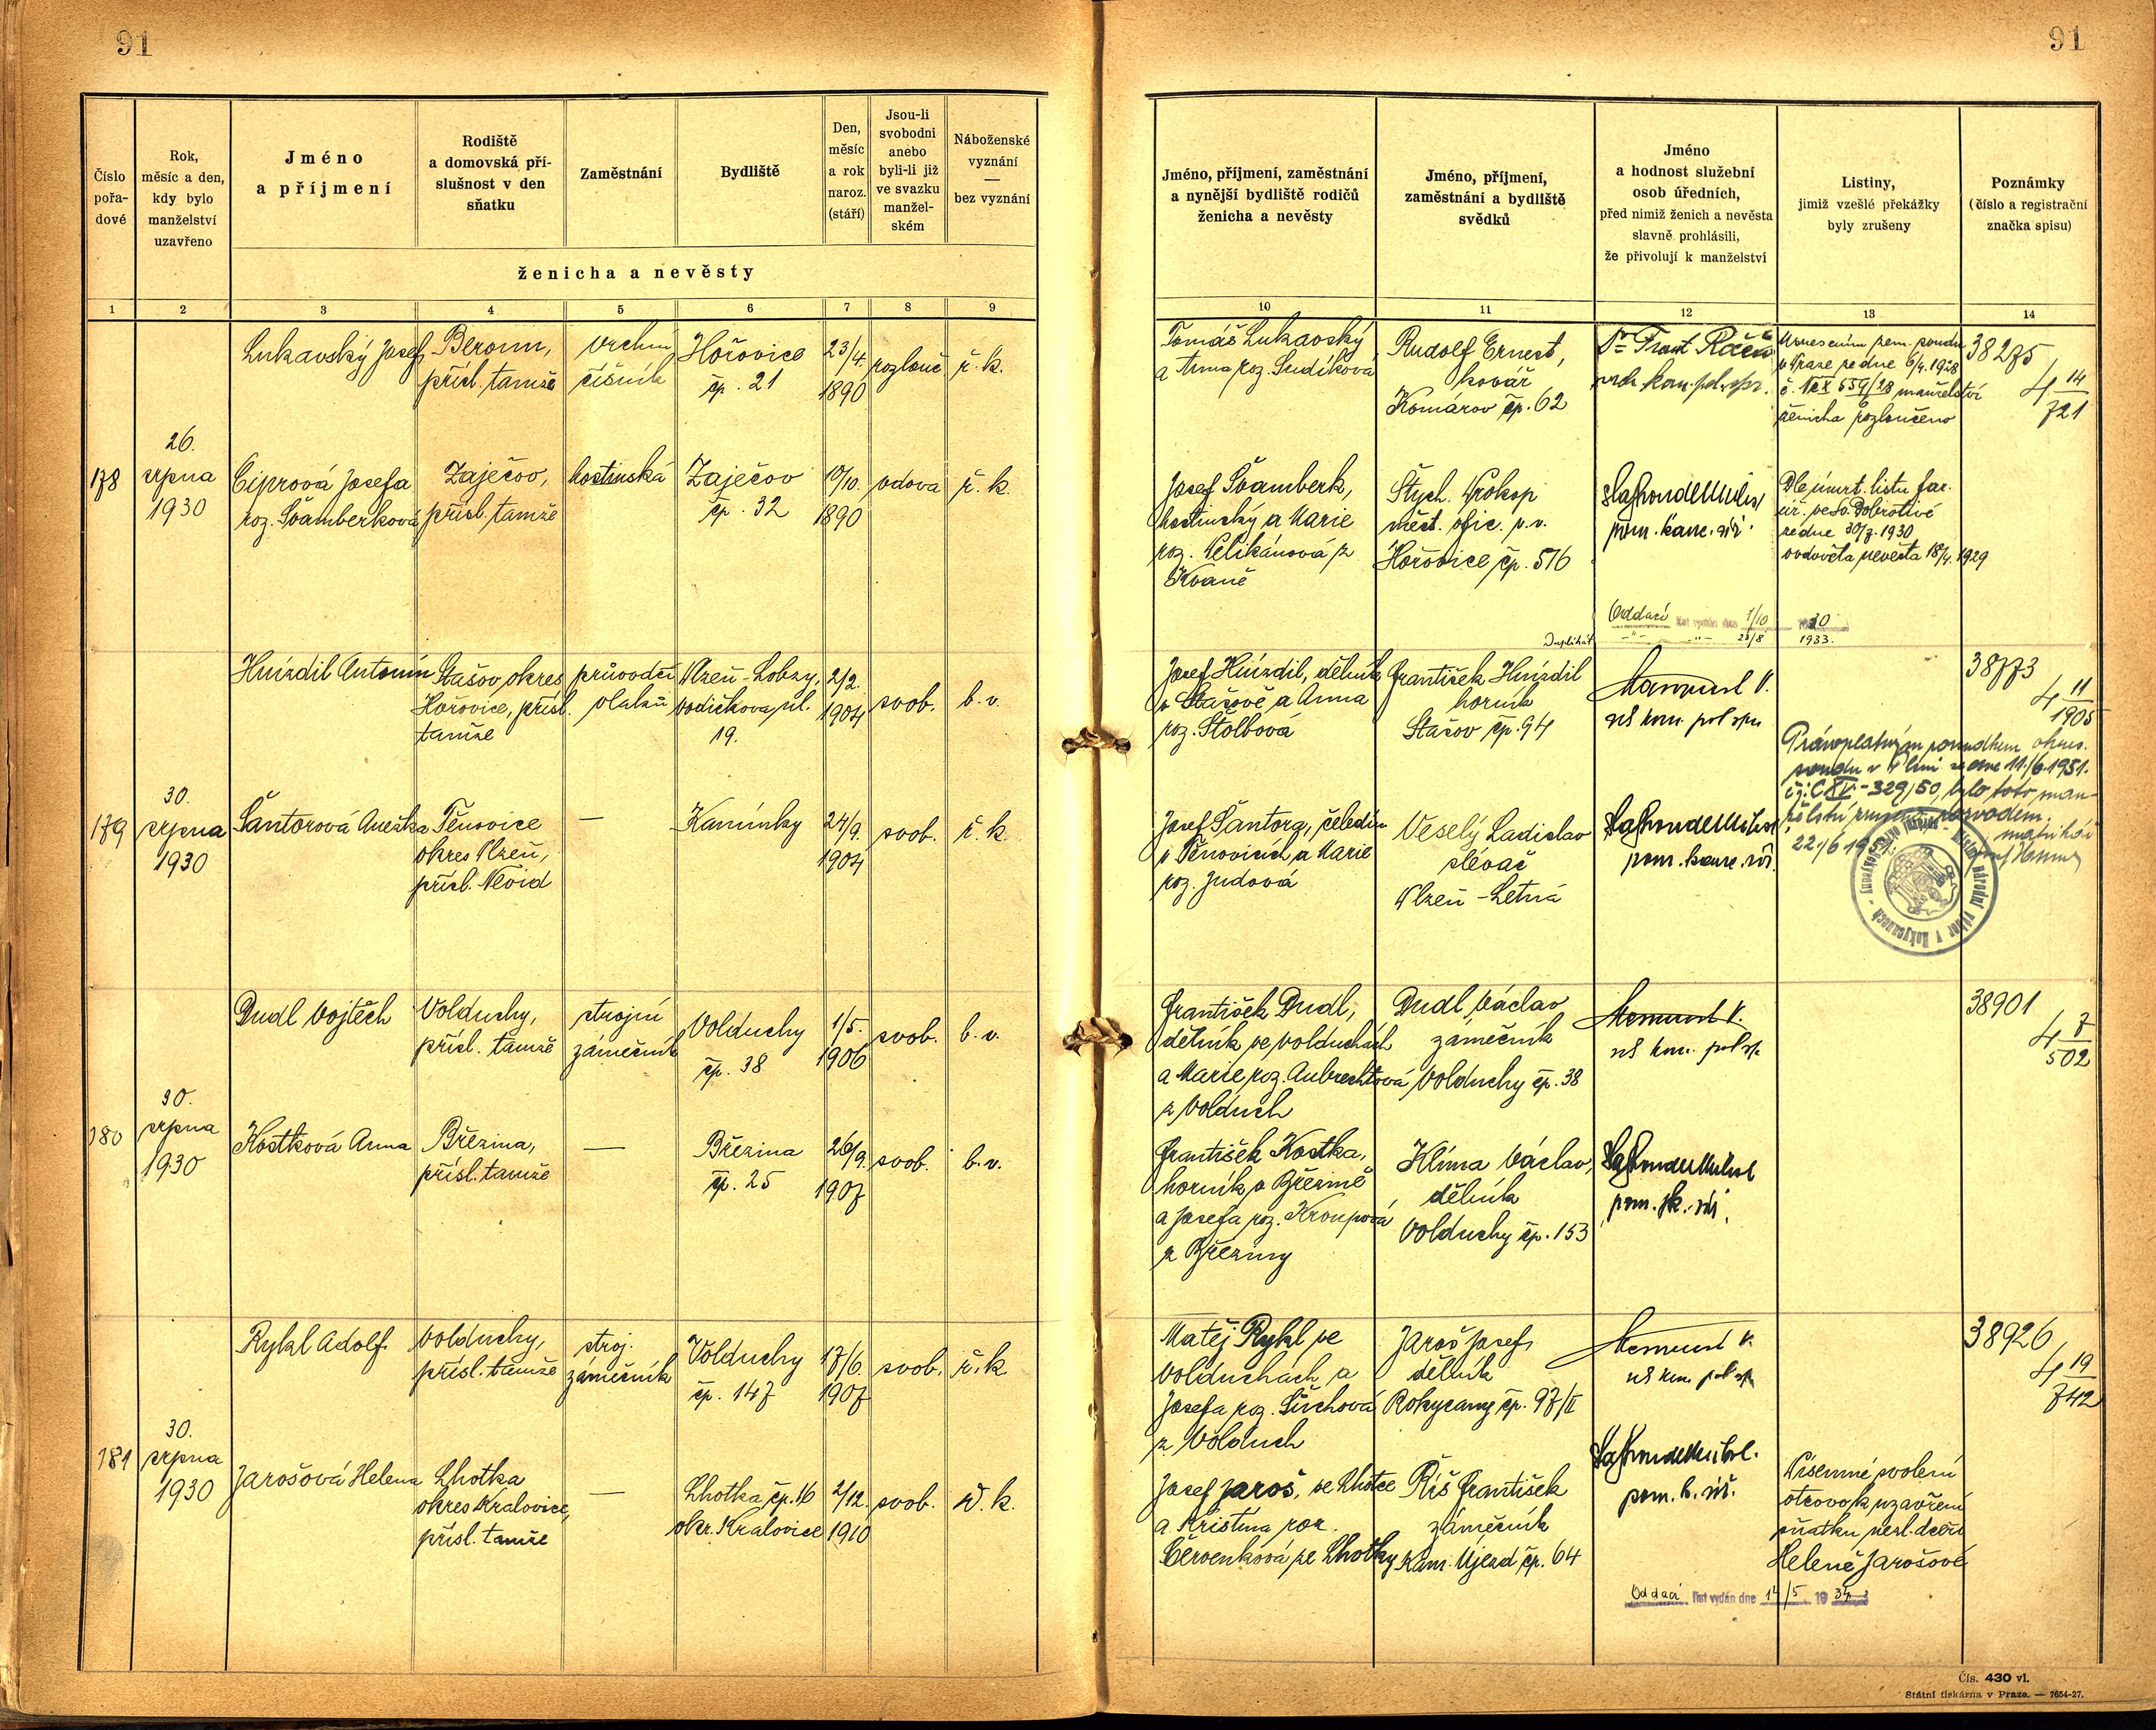 91
91
Číslo
pořa-
dové
Rok,
měsíc a den,
kdy bylo
manželství
uzavřeno
Jméno
a příjmení
Rodiště
a domovská pří-
slušnost v den
sňatku
Zaměstnání
Bydliště
Den,
měsíc
a rok
naroz.
(stáří)
Jsou-li
svobodni
anebo
byli-li již
ve svazku
manžel-
ském
Náboženské
vyznání
—
bez vyznání
ženicha a nevěsty
Jméno, příjmení, zaměstnání
a nynější bydliště rodičů
ženicha a nevěsty
Jméno, příjmení,
zaměstnání a bydliště
svědků
Jméno
a hodnost služební
osob úředních,
před nimiž ženich a nevěsta
slavně prohlásili,
že přivolují k manželství
Listiny,
jimiž vzešlé překážky
byly zrušeny
Poznámky
(číslo a registrační
značka spisu)
1 2 3 4 5 6 7 8 9
10 11 12 13 14
178
26.
srpna
1930
Lukavský Josef
Beroun,
přísl. tamže
vrchní
číšník
Hořovice
čp. 21
23/4.
1890
rozlouč
ř. k.
Tomáš Lukavský
a Anna roz. Sudíková
Rudolf Ernest,
kovář
Komárov čp. 62
Usnesením zem. soudu
v Praze ze dne 6/4. 1928
manželství
ženicha rozloučeno
38275
4 14/721
Ciprová Josefa
roz. Švamberková
Zaječov,
přísl. tamže
hostinská
Zaječov
čp. 32
10/10.
1890
vdova
ř. k.
Josef Švamberk,
hostinský a Marie
roz. Pelikánová z
Kvaně
Štych. Prokop
měst. ofic. v. v.
Hořovice čp. 516
pom. kanc. síl.
Dle úmrt. listu far.
úř. ve Sv. Dobrotivé
ze dne 30/7. 1930
ovdověla nevěsta 18/4. 1929
Oddací list vydán dne 1/10 1930
Duplikát -"- -"- 23/8 1933.
179
30.
srpna
1930
Hnízdil Antonín
Stašov okres
Hořovice, přísl.
tamže
průvodčí
vlaků
Plzeň-Lobzy,
Vodičkova ul.
19.
2/2.
1904
svob.
b. v.
Josef Hnízdil, dělník
v Stašově a Anna
roz. Štolbová
František Hnízdil
horník
Stašov čp. 94
38773
4 11/1905
Pravoplatným rozsudkem okres.
soudu v Plzni ze dne 11./6.1951.
čj: C XV - 329/50, bylo toto man-
želství zrušeno rozvodem.
22./6 1951.
Místní národní výbor v Rokycanech
Šantorová Anežka
Těnovice
okres Plzeň,
přísl. Nevid
—
Kamínky
24/9.
1904
svob.
ř. k.
Josef Šantora, čeledín
v Těnovicích a Marie
roz. Judová
Veselý Ladislav
slévač
Plzeň-Letná
pom. kanc. síl.
180
30.
srpna
1930
Dudl Vojtěch
Volduchy,
přísl. tamže
strojní
zámečník
Volduchy
čp. 38
1/5.
1906
svob.
b. v.
František Dudl,
dělník ve Volduchách
a Marie roz. Aubrechtová
z Volduch
Dudl Václav
zámečník
Volduchy čp. 38
38901
4 7/502
Kostková Anna
Březina,
přísl. tamže
—
Březina
čp. 25
26/9.
1907
svob.
b. v.
František Kostka,
horník v Březině
a Josefa roz. Kroupová
z Březiny
Klíma Václav,
dělník
Volduchy čp. 153
181
30.
srpna
1930
Rykl Adolf
Volduchy,
přísl. tamže
stroj.
zámečník
Volduchy
čp. 147
17/6.
1907
svob.
ř. k.
Matěj Rykl ve
Volduchách a
Josefa roz. Šůchová
z Volduch
Jaroš Josef
dělník
Rokycany čp. 97/II
38926
4 19/742
Jarošová Helena
Lhotka
okres Kralovice,
přísl. tamže
—
Lhotka čp. 16
okr. Kralovice
2/12.
1910
svob.
ř. k.
Josef Jaroš, ve Lhotce
a Kristina roz.
Červenková ze Lhotky
Říš František
zámečník
Kam. Újezd čp. 64
Písemné svolení
otcovo k uzavření
sňatku nezl. dceři
Heleně Jarošové
Oddací list vydán dne 14/5 1934
Čís. 430 vl.
Státní tiskárna v Praze. — 7654-27.